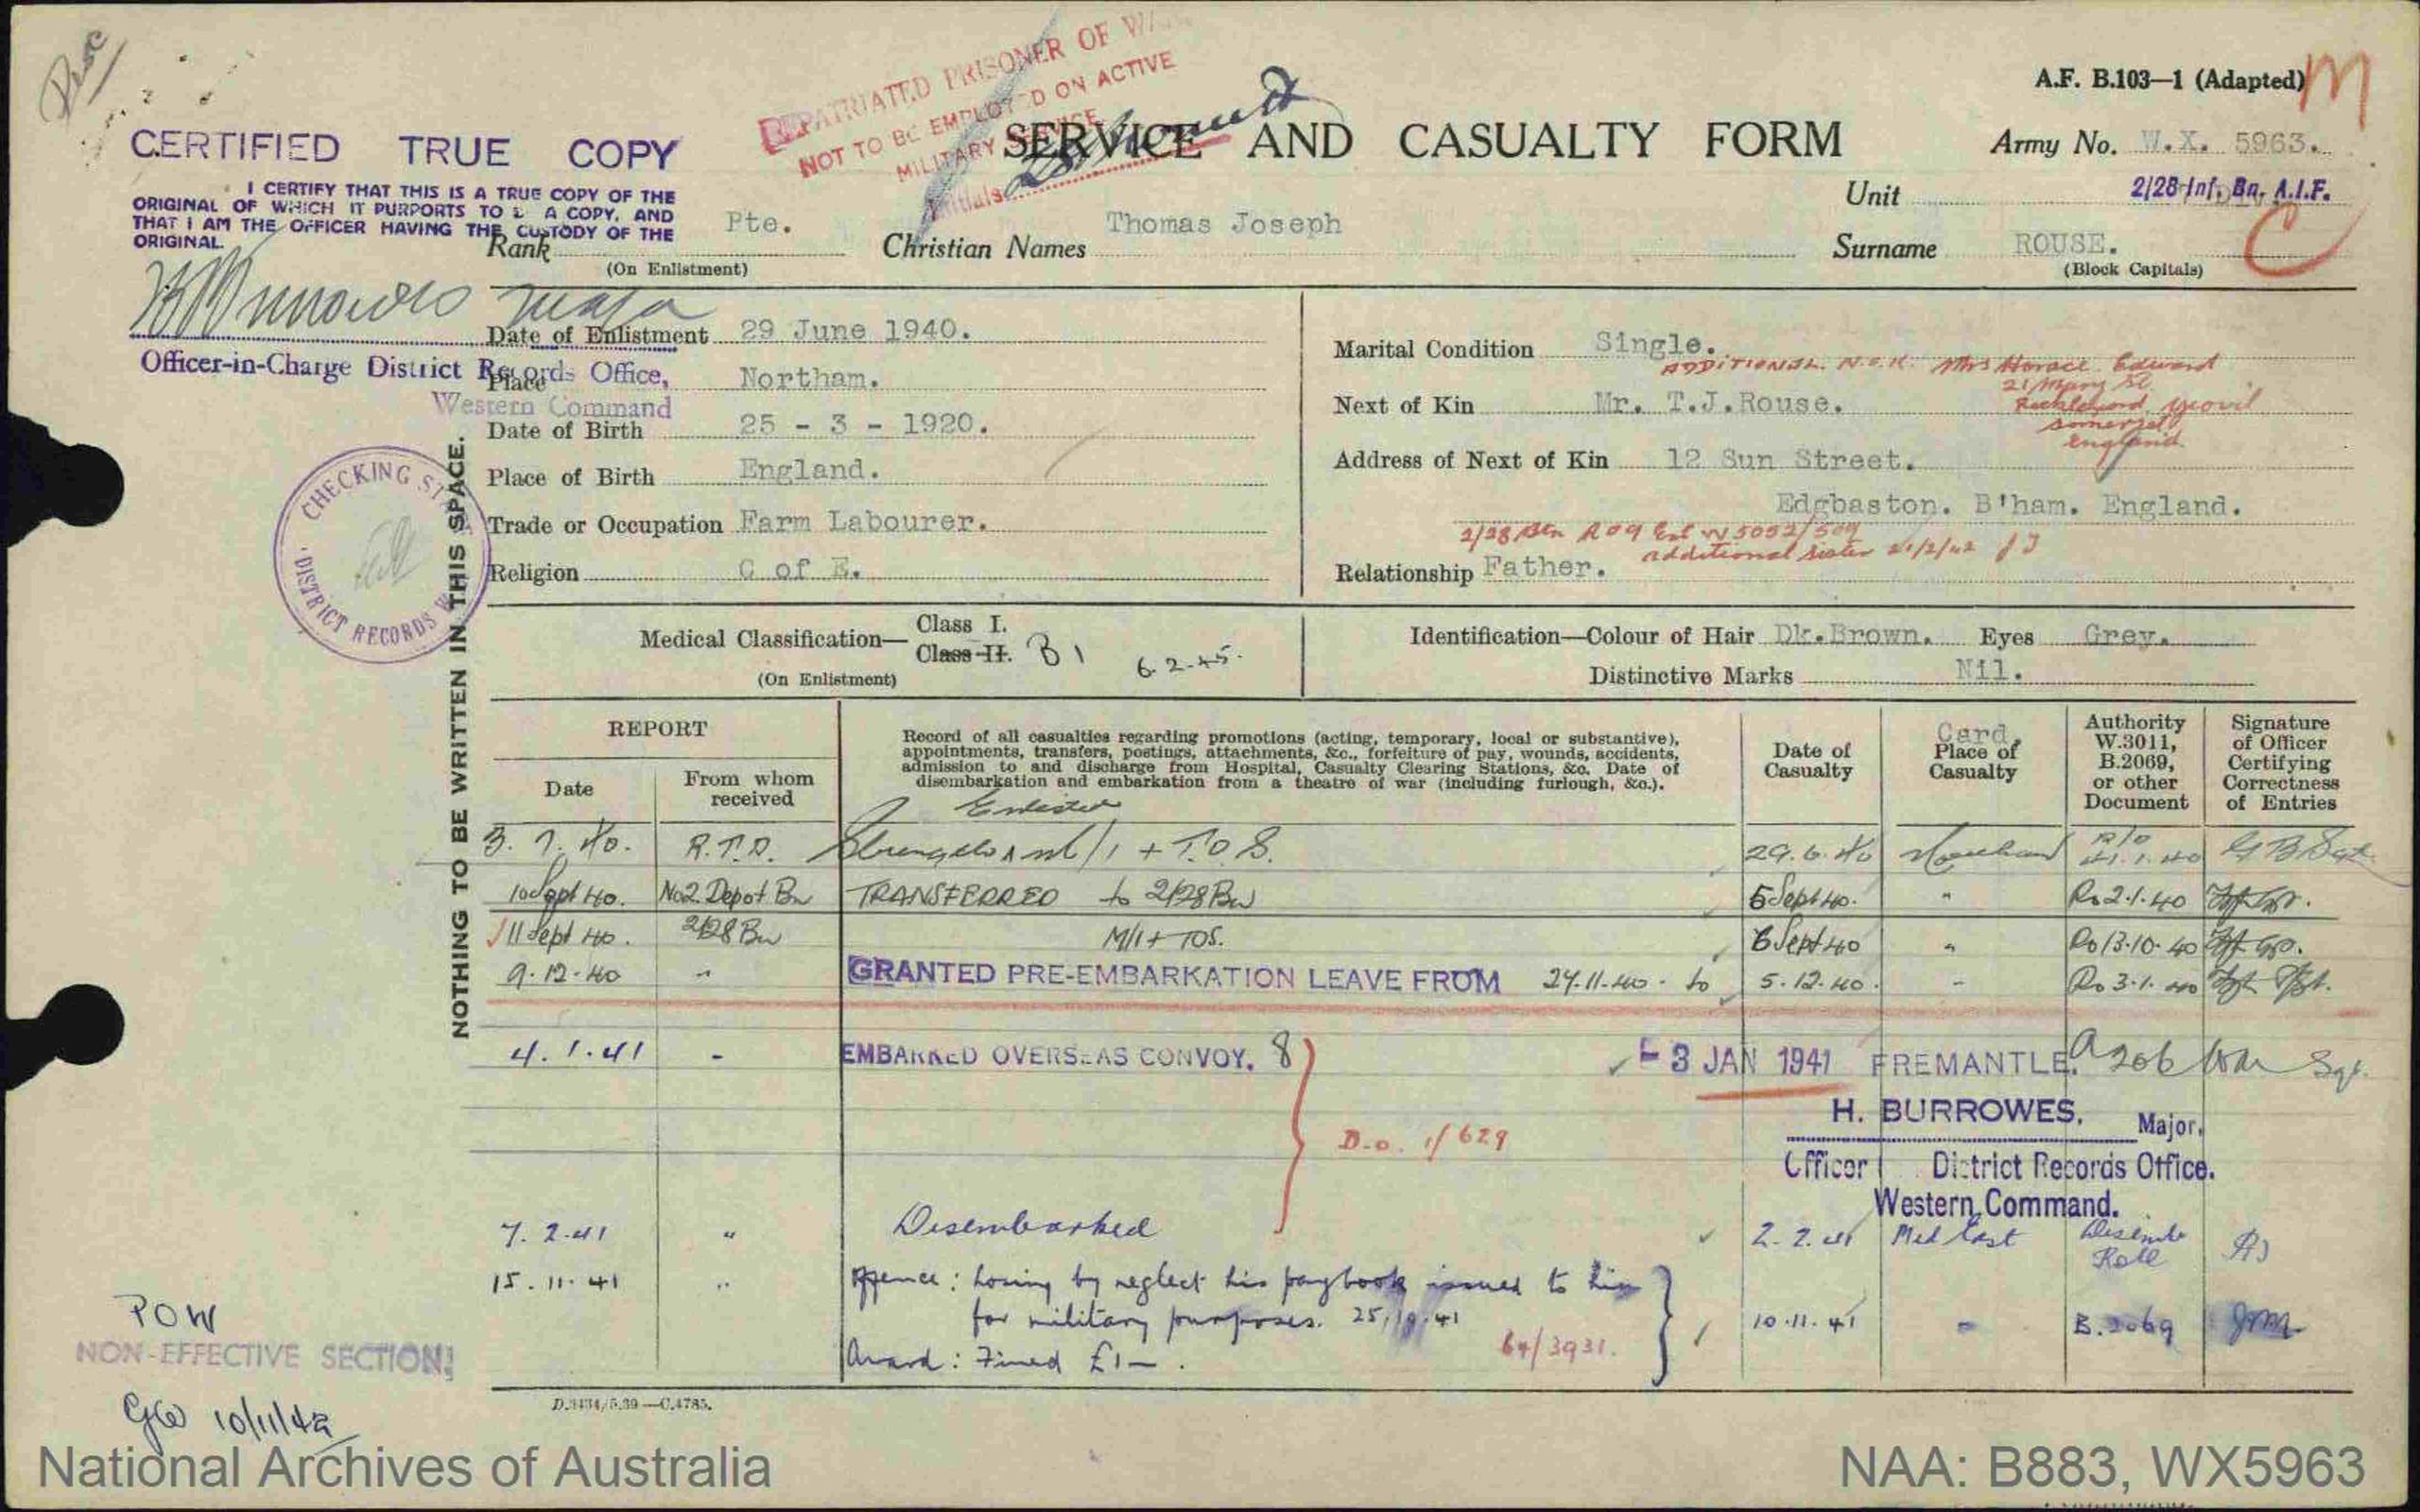 Disc
REPATRIATED PRISONER OF WA
NOT TO BE EMPLOYED ON ACTIVE
MILITARY SERVICE
Initials
A.F. B.103—1 (Adapted)
M
CERTIFIED TRUE COPY
SERVICE AND CASUALTY FORM
Army No. W.X. 5963.
I CERTIFY THAT THIS IS A TRUE COPY OF THE
ORIGINAL OF WHICH IT PURPORTS TO BE A COPY, AND
THAT I AM THE OFFICER HAVING THE CUSTODY OF THE
ORIGINAL.
Unit 2/28 Inf. Bn. A.I.F.
Rank Pte. Christian Names Thomas Joseph Surname ROUSE.
(On Enlistment) (Block Capitals)
C
Major
Officer-in-Charge District Records Office,
Western Command
Date of Enlistment 29 June 1940.
Place Northam.
Date of Birth 25 - 3 - 1920.
Place of Birth England.
Trade or Occupation Farm Labourer.
Religion C of E.
Marital Condition Single.
ADDITIONAL N.O.K. Mrs Horace Edward
21 Mary St
Yeovil
Somerset
England
Next of Kin Mr. T.J.Rouse.
Address of Next of Kin 12 Sun Street.
Edgbaston. B'ham. England.
2/28 Btn
additional sister 21/2/42
Relationship Father.
CHECKING
DISTRICT RECORDS
NOTHING TO BE WRITTEN IN THIS SPACE.
Medical Classification— Class I.
Class II. B1 6.2.45.
(On Enlistment)
Identification—Colour of Hair Dk.Brown. Eyes Grey.
Distinctive Marks Nil.
REPORT
Date
From whom received
Record of all casualties regarding promotions (acting, temporary, local or substantive),
appointments, transfers, postings, attachments, &c., forfeiture of pay, wounds, accidents,
admission to and discharge from Hospital, Casualty Clearing Stations, &c. Date of
disembarkation and embarkation from a theatre of war (including furlough, &c.).
Date of Casualty
Card.
Place of Casualty
Authority W.3011, B.2069, or other Document
Signature of Officer Certifying Correctness of Entries
Enlisted
3. 7. 40. R.T.D. + T.O.S. 29.6.40
10 Sept 40. No2. Depot Bn TRANSFERRED to 2/28 Bn 5 Sept 40. " Ro 2.1.40
11 Sept 40. 2/28 Bn M/I + TOS. 6 Sept 40 " Ro 13.10.40
9.12.40 " GRANTED PRE-EMBARKATION LEAVE FROM 24.11.40 - to 5.12.40. - Ro 3.1.40
4.1.41 - EMBARKED OVERSEAS CONVOY. 8 - 3 JAN 1941 FREMANTLE. A206 Sgt.
H. BURROWES. Major,
D.O. 1/629
Officer District Records Office.
Western Command.
7.2.41 " Disembarked 2.2.41 Mid East Disemb Roll
15.11.41 " Offence: Losing by neglect his paybook issued to him
for military purposes. 25.10.41 10.11.41 - B.2069
Award: Fined £1—. 64/3931.
POW
NON-EFFECTIVE SECTION
GW 10/11/42
D.3434/5.39—C.4785.
National Archives of Australia
NAA: B883, WX5963